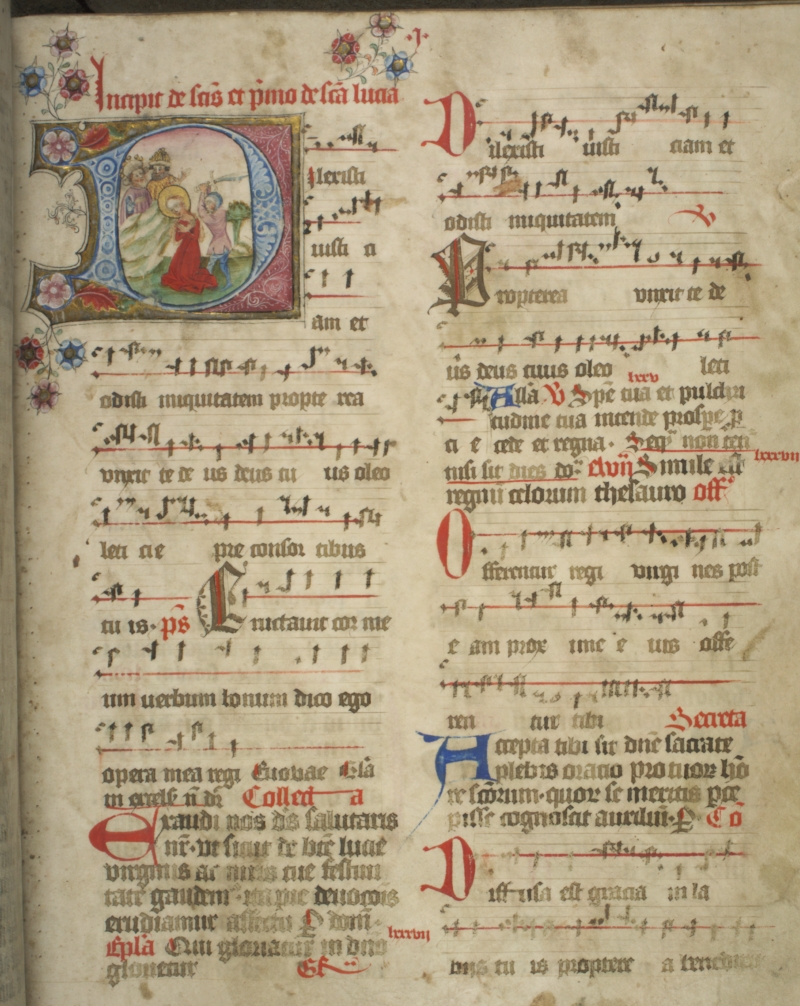 ·j·
Incipit de scis et pimo de sca lucia
Dilexisti
iusti ci
am et
odisti iniquitatem propte rea
vnxit te de us deus tu us oleo
leti cie pre consor tibus
tu is· ps Eructauit cor me
um uerbum bonum dico ego
opera mea regi Euouae Gla
in excels n dr Collecta
Exaudi nos ds salutaris
nr· vt sicut de bte lucie
virginis ac mris tue festiui
tate gaudem· ita pie deuocois
erudiamur affectu P dom·
Epla Qui gloriatur in dno lxxxvij
glorietur Gr
Dilexisti iusti ciam et
odisti iniquitatem V
Propterea vnxit te de
us deus tuus oleo leti
lxxv
cie Alla V Spe tua et pulchri
tudine tua intende prospe p
cede et regna· Seq non ten
nisi sit dies do clvij Simile est lxxxvij
regnu celorum thesauro off
Offerentur regi virgi nes post
e am prox ime e ius offe
ren tur tibi Secreta
Accepta tibi sit dne sacrate
plebis oracio pro tuor ho
re scorum· quor se meritis pce
pisse cognoscit auxiliu· P Co
Diffusa est gracia in la
biis tu is propterea